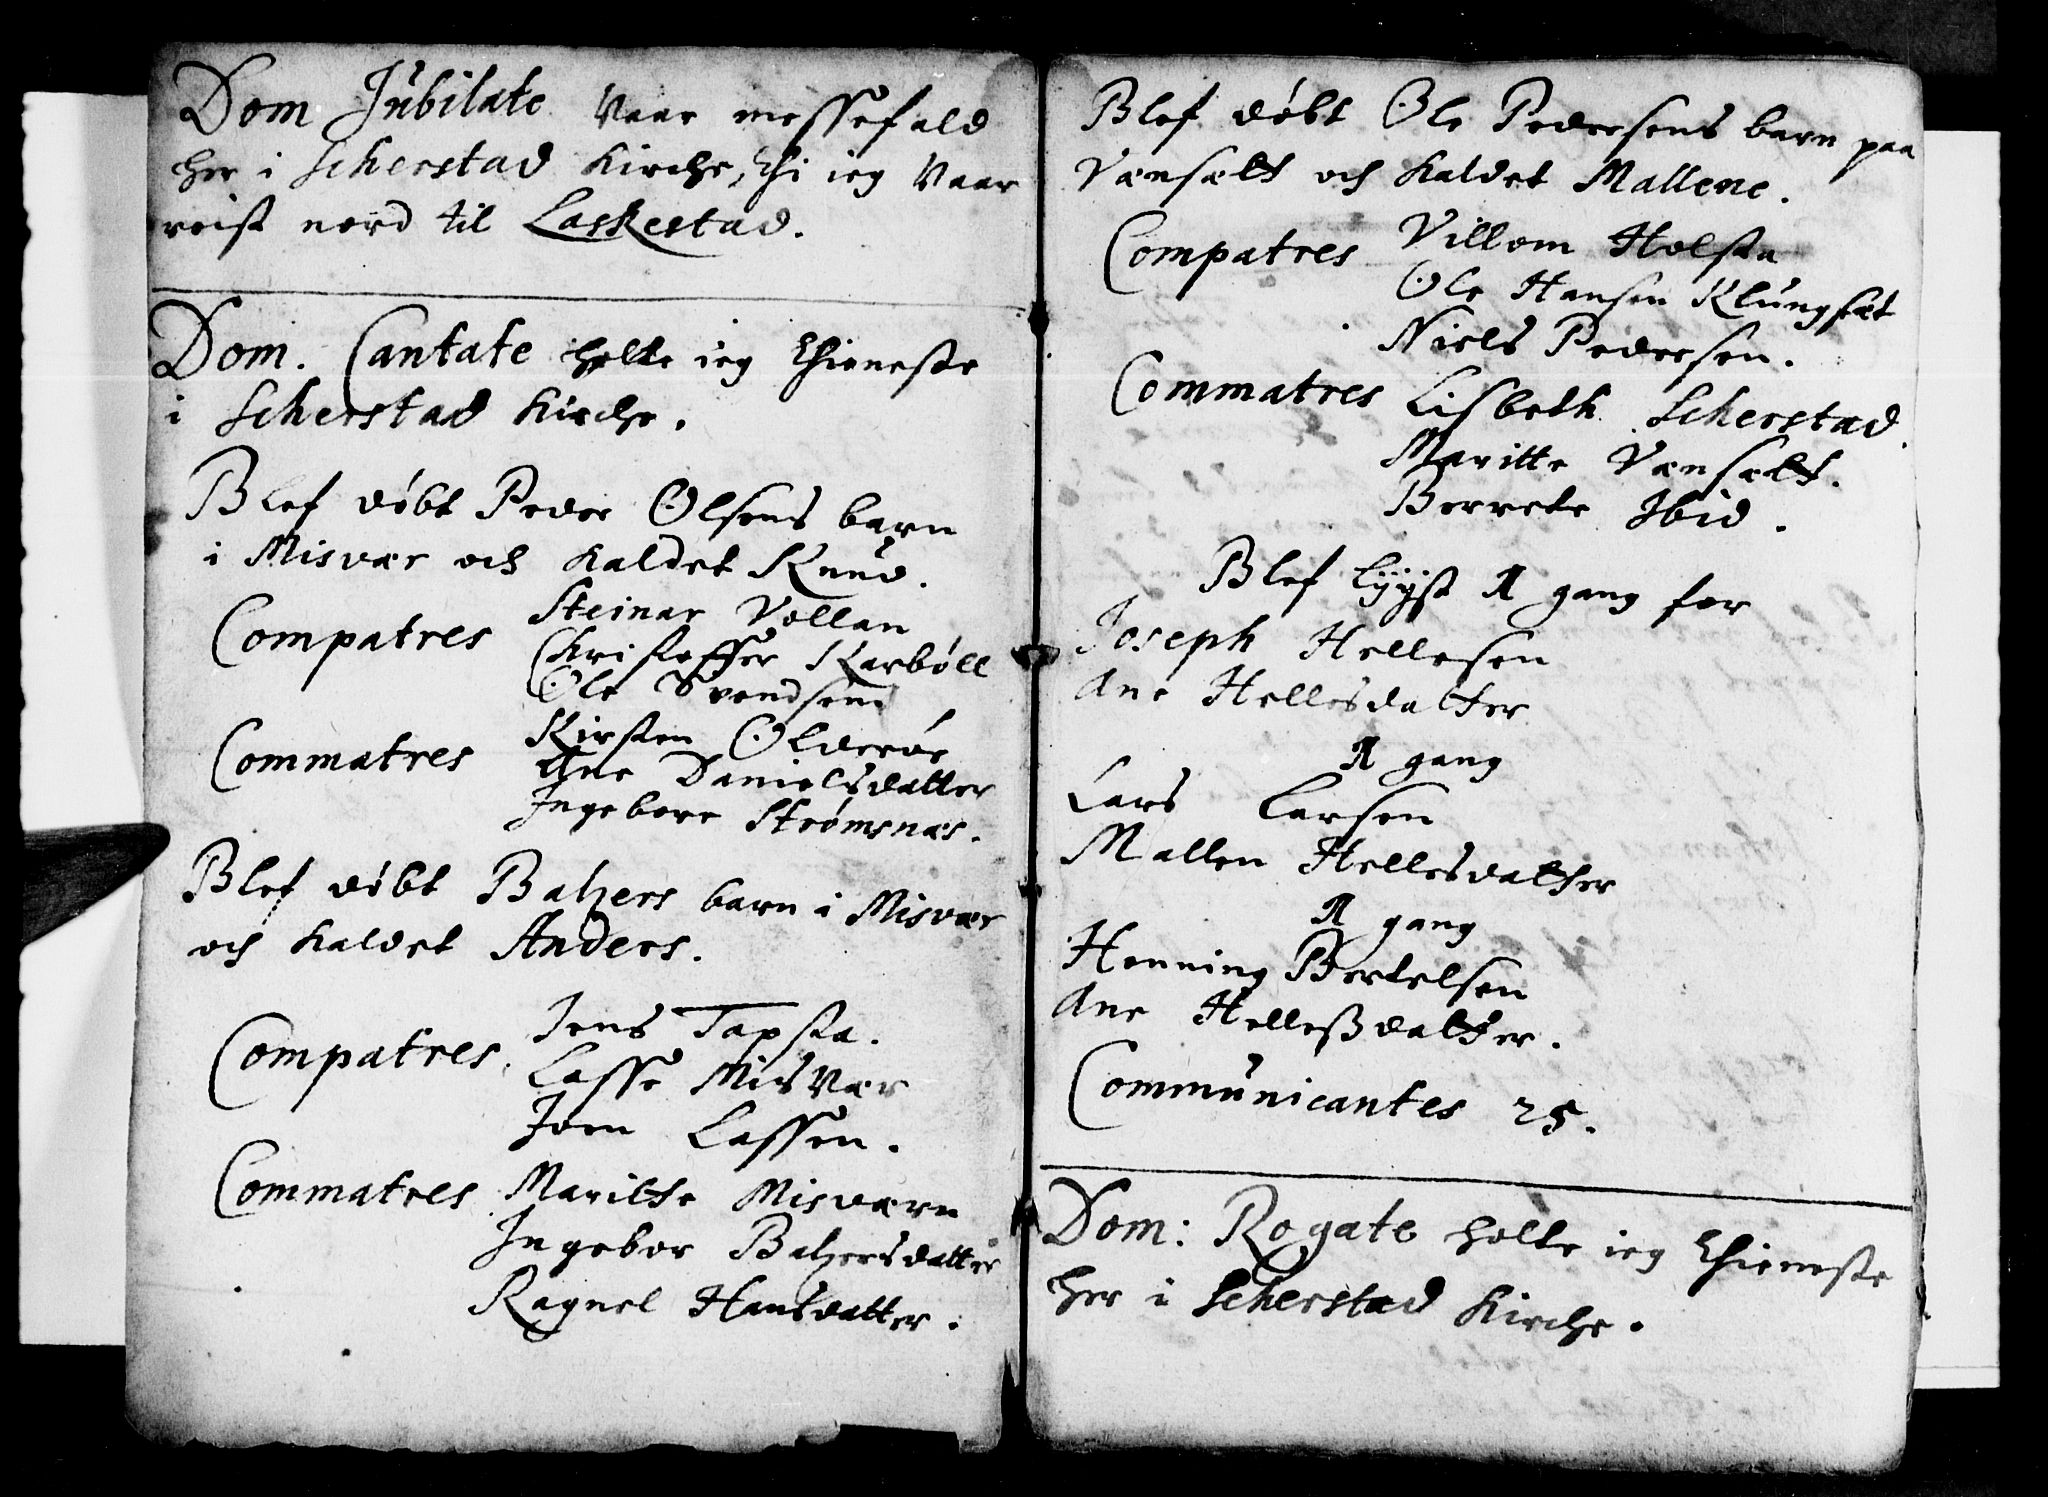 Dom Jubilate Vaar messefald
her i Scherstad Kirche, thi ieg Vaar
reist nord til Laskestad.
Dom. Cantate holte ieg thieneste
i Scherstad Kirche.
Blef døbt Peder Olsens barn
i Misvær och Kaldet Knud.
Compatres Steinar Vollan
Christoffer Karbøll
Ole Svendsen
Commatres Kirsten Olderøe
Ane Danielsdatter
Ingebore Strømsnæs.
Blef døbt Baltzers barn i Misvær
och Kaldet Anders.
Compatres. Jens Topsta.
Lasse MisVær
Joen Lassen.
Commatres Maritte Misværn
Ingebor Baltzersdatter
Ragnel Hansdatter.
Blef døbt Ole Pedersens barn paa
Vænsætt och Kaldet Mallene.
Compatres Villom Holsta
Ole Hansen Klungsæt
Niels Pedersen.
Commatres Lisbeth Scherstad
Maritte Vænsætt.
Berrete Ibid.
Blef lyyst 1 gang for
Joseph Hellesen
Ane Hellesdatter
1 gang
Lars Larsen
Mallen Hellesdatter
1 gang
Henning Bertelsen
Ane Hellesdatter.
Communicantes 25.
Dom: Rogate holte ieg thieneste
her i Scherstad Kirche.